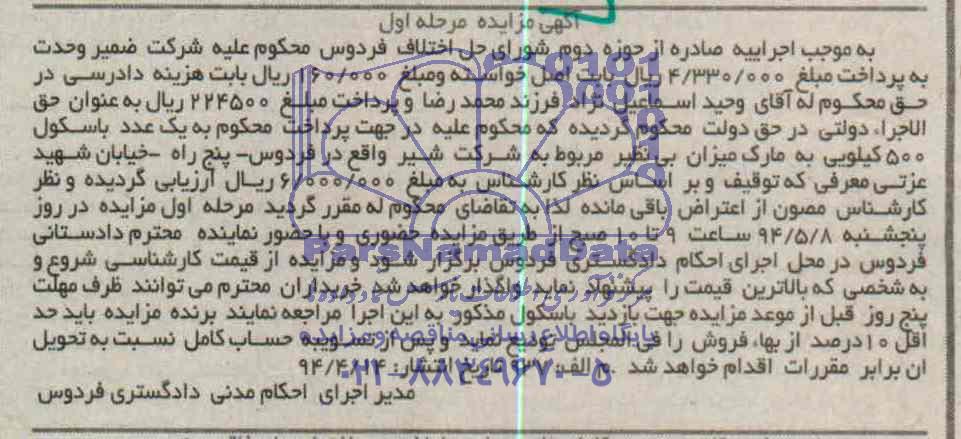 آگهی مزایده مرحله اول
به موجب اجراییه صادره از حوزه دوم شورای حل اختلاف فردوس محکوم علیه شرکت ضمیر وحدت
به پرداخت مبلغ ۴/۳۳۰/۰۰۰ ریال بابت اصل خواسته ومبلغ ۱۶۰/۰۰۰ ریال بابت هزینه دادرسی در
حق محکوم له آقای وحید اسماعیل نژاد فرزند محمد رضا و پرداخت مبلغ ۲۲۴۵۰۰ ریال به عنوان حق
الاجراء دولتی در حق دولت محکوم گردیده که محکوم علیه در جهت پرداخت محکوم به یک عدد باسکول
۵۰۰ کیلویی به مارک میزان بی نظیر مربوط به شرکت شیر واقع در فردوس- پنج راه -خیابان شهید
عزتی معرفی که توقیف و بر اساس نظر کارشناس به مبلغ ۶/۰۰۰/۰۰۰ ریال ارزیابی گردیده و نظر
کارشناس مصون از اعتراض باقی مانده لذا به تقاضای محکوم له مقرر گردید مرحله اول مزایده در روز
پنجشنبه ۹۴/۵/۸ ساعت ۹ تا ۱۰ صبح از طریق مزایده حضوری و با حضور نماینده محترم دادستانی
فردوس در محل اجرای احکام دادگستری فردوس برگزار شود و مزایده از قیمت کارشناسی شروع و
به شخصی که بالاترین قیمت را پیشنهاد نماید واگذار خواهد شد خریداران محترم می توانند ظرف مهلت
پنج روز قبل از موعد مزایده جهت بازدید باسکول مذکور به این اجرا مراجعه نمایند برنده مزایده باید حد
اقل ۱۰درصد از بهاء فروش را فی المجلس تودیع نماید و پس از تسویه حساب کامل نسبت به تحویل
ان برابر مقررات اقدام خواهد شد م الف: تاریخ انتشار: ۹۴/۴/۲۴
مدیر اجرای احکام مدنی دادگستری فردوس
ParsNamadData
پایگاه اطلاع رسانی مناقصه و مزایده
۰۲۱-۸۸۳۴۹۶۷۰-۵